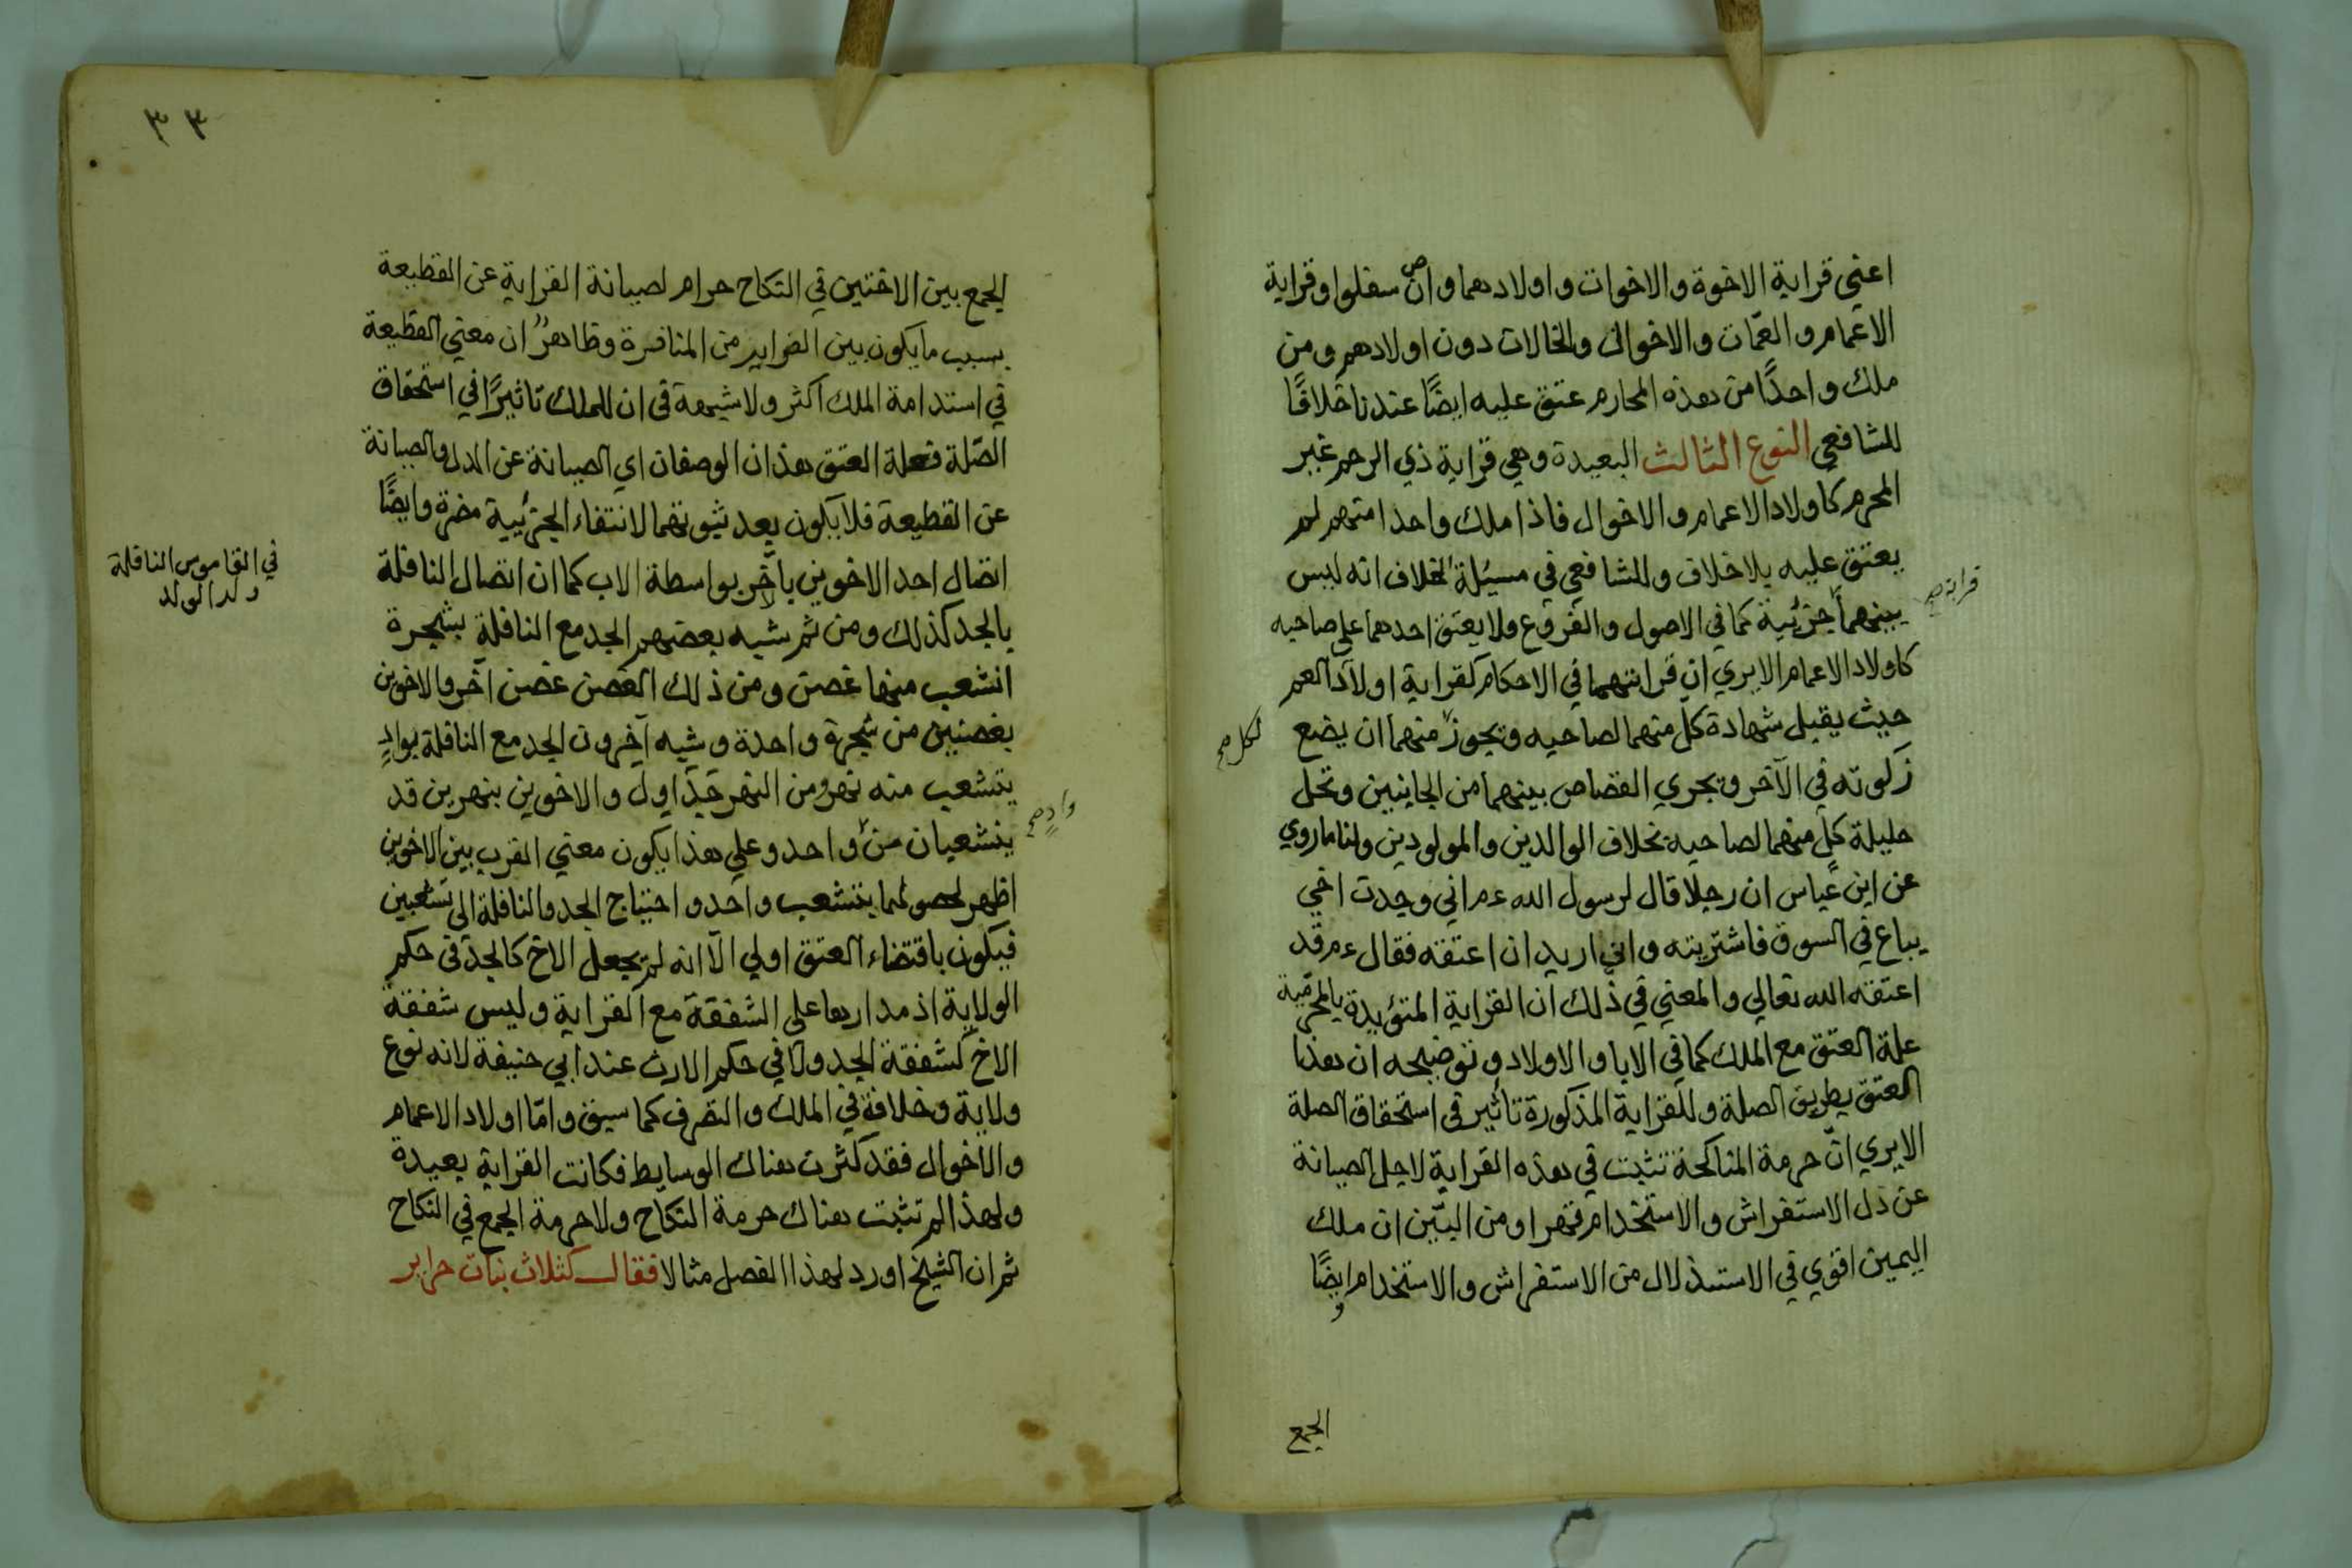 اعني قرابة الاخوة والاخوات واولادهما وان سفلوا وقرابة
الاعمام والعمّات والاخوال والخالات دون اولادهم ومن
ملك واحدًا من هذه المحارم عتق عليه ايضًا عندنا خلافًا
للشافعي النوع الثالث البعيدة وهي قرابة ذي الرحم غير
المحرم كاولاد الاعمام والاخوال فاذا ملك واحدا منهم لم
يعتق عليه بلا خلاف وللشافعي في مسئلة الخلاف انه ليس
بينهما جزئية كما في الاصول والفروع ولا يعتق احدهما على صاحبه
قرابة صح
كاولاد الاعمام الا يري ان قرابتهما في الاحكام كقرابة اولاد العم
حيث يقبل شهادة كل منهما لصاحبه ويجوز منهما ان يضع
لكل صح
زكوته في الآخر ويجري القصاص بينهما من الجانبين وتحل
حليلة كل منهما لصاحبه بخلاف الوالدين والمولودين ولنا ما روي
عن ابن عباس ان رجلا قال لرسول الله عم اني وجدت اخي
يباع في السوق فاشتريته واني اريد ان اعتقه فقال عم قد
اعتقه الله تعالي والمعني في ذلك ان القرابة المتؤيدة بالمحرمية
علة العتق مع الملك كما في الابا والاولاد وتوضيحه ان هذا
العتق بطريق الصلة وللقرابة المذكورة تأثير في استحقاق الصلة
الا يري انّ حرمة المناكحة تثبت في هذه القرابة لاجل الصيانة
عن ذل الاستفراش والاستخدام قهرا ومن البيّن ان ملك
اليمين اقوي في الاستذلال من الاستفراش والاستخدام وايضًا
الجمع
٣٣
الجمع بين الاختين في النكاح حرام لصيانة القرابة عن القطيعة
بسبب ما يكون بين الضراير من المنافرة وظاهر ان معني القطيعة
في استدامة الملك اكثر ولا شبهة في ان للملك تاثيرًا في استحقاق
الصّلة فعلة العتق هذان الوصفان اي الصيانة عن الذل والصيانة
عن القطيعة فلا يكون بعد ثبوتهما لانتفاء الجزئية مضرة وايضًا
اتصال احد الاخوين بآخر بواسطة الاب كما ان اتصال النافلة
في القاموس النافلة
ولد الولد
بالجد كذلك ومن ثم شبه بعضهم الجد مع النافلة بشجرة
انشعب منها غصن ومن ذلك الغصن غصن آخر والاخوين
بغصنين من شجرة واحدة وشبه آخرون الجد مع النافلة بوادٍ
يتشعب منه نهر ومن النهر جداول والاخوين بنهرين قد
ينشعبان من واحد وعلي هذا يكون معني القرب بين الاخوين
وادٍ صح
اظهر لحصولهما بتشعب واحد واحتياج الجد والنافلة الى تشعبين
فيكون باقتضاء العتق اولي الّا انه لم يجعل الاخ كالجد في حكم
الولاية اذ مدارها على الشفقة مع القرابة وليس شفقة
الاخ كشفقة الجد ولا في حكم الارث عند ابي حنيفة لانه نوع
ولاية وخلافة في الملك والتصرف كما سبق وامّا اولاد الاعمام
والاخوال فقد كثرت هناك الوسايط فكانت القرابة بعيدة
ولهذا لم تثبت هناك حرمة النكاح ولا حرمة الجمع في النكاح
ثم ان الشيخ اورد لهذا الفصل مثالا فقال كثلاث بنات حراير